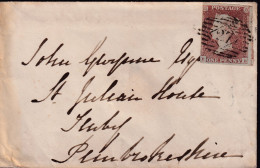 POSTAGE
ONE PENNY
John Esq
St Julian House
Tenby
Pembrokeshire